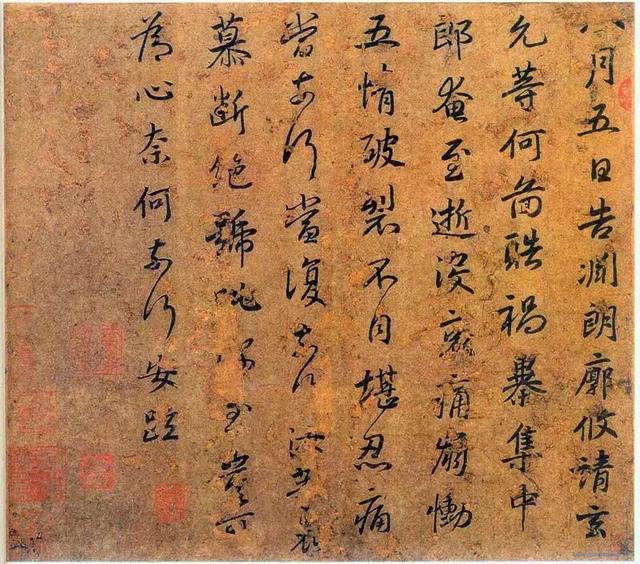 八月五日告淵朗廓攸靖玄
允等何啚酷禍暴集中
郎奄至逝沒哀痛崩慟
五情破裂不自堪忍痛
當奈何當復奈何汝等哀
慕斷絕號咷深至豈可
為心奈何奈何安疏